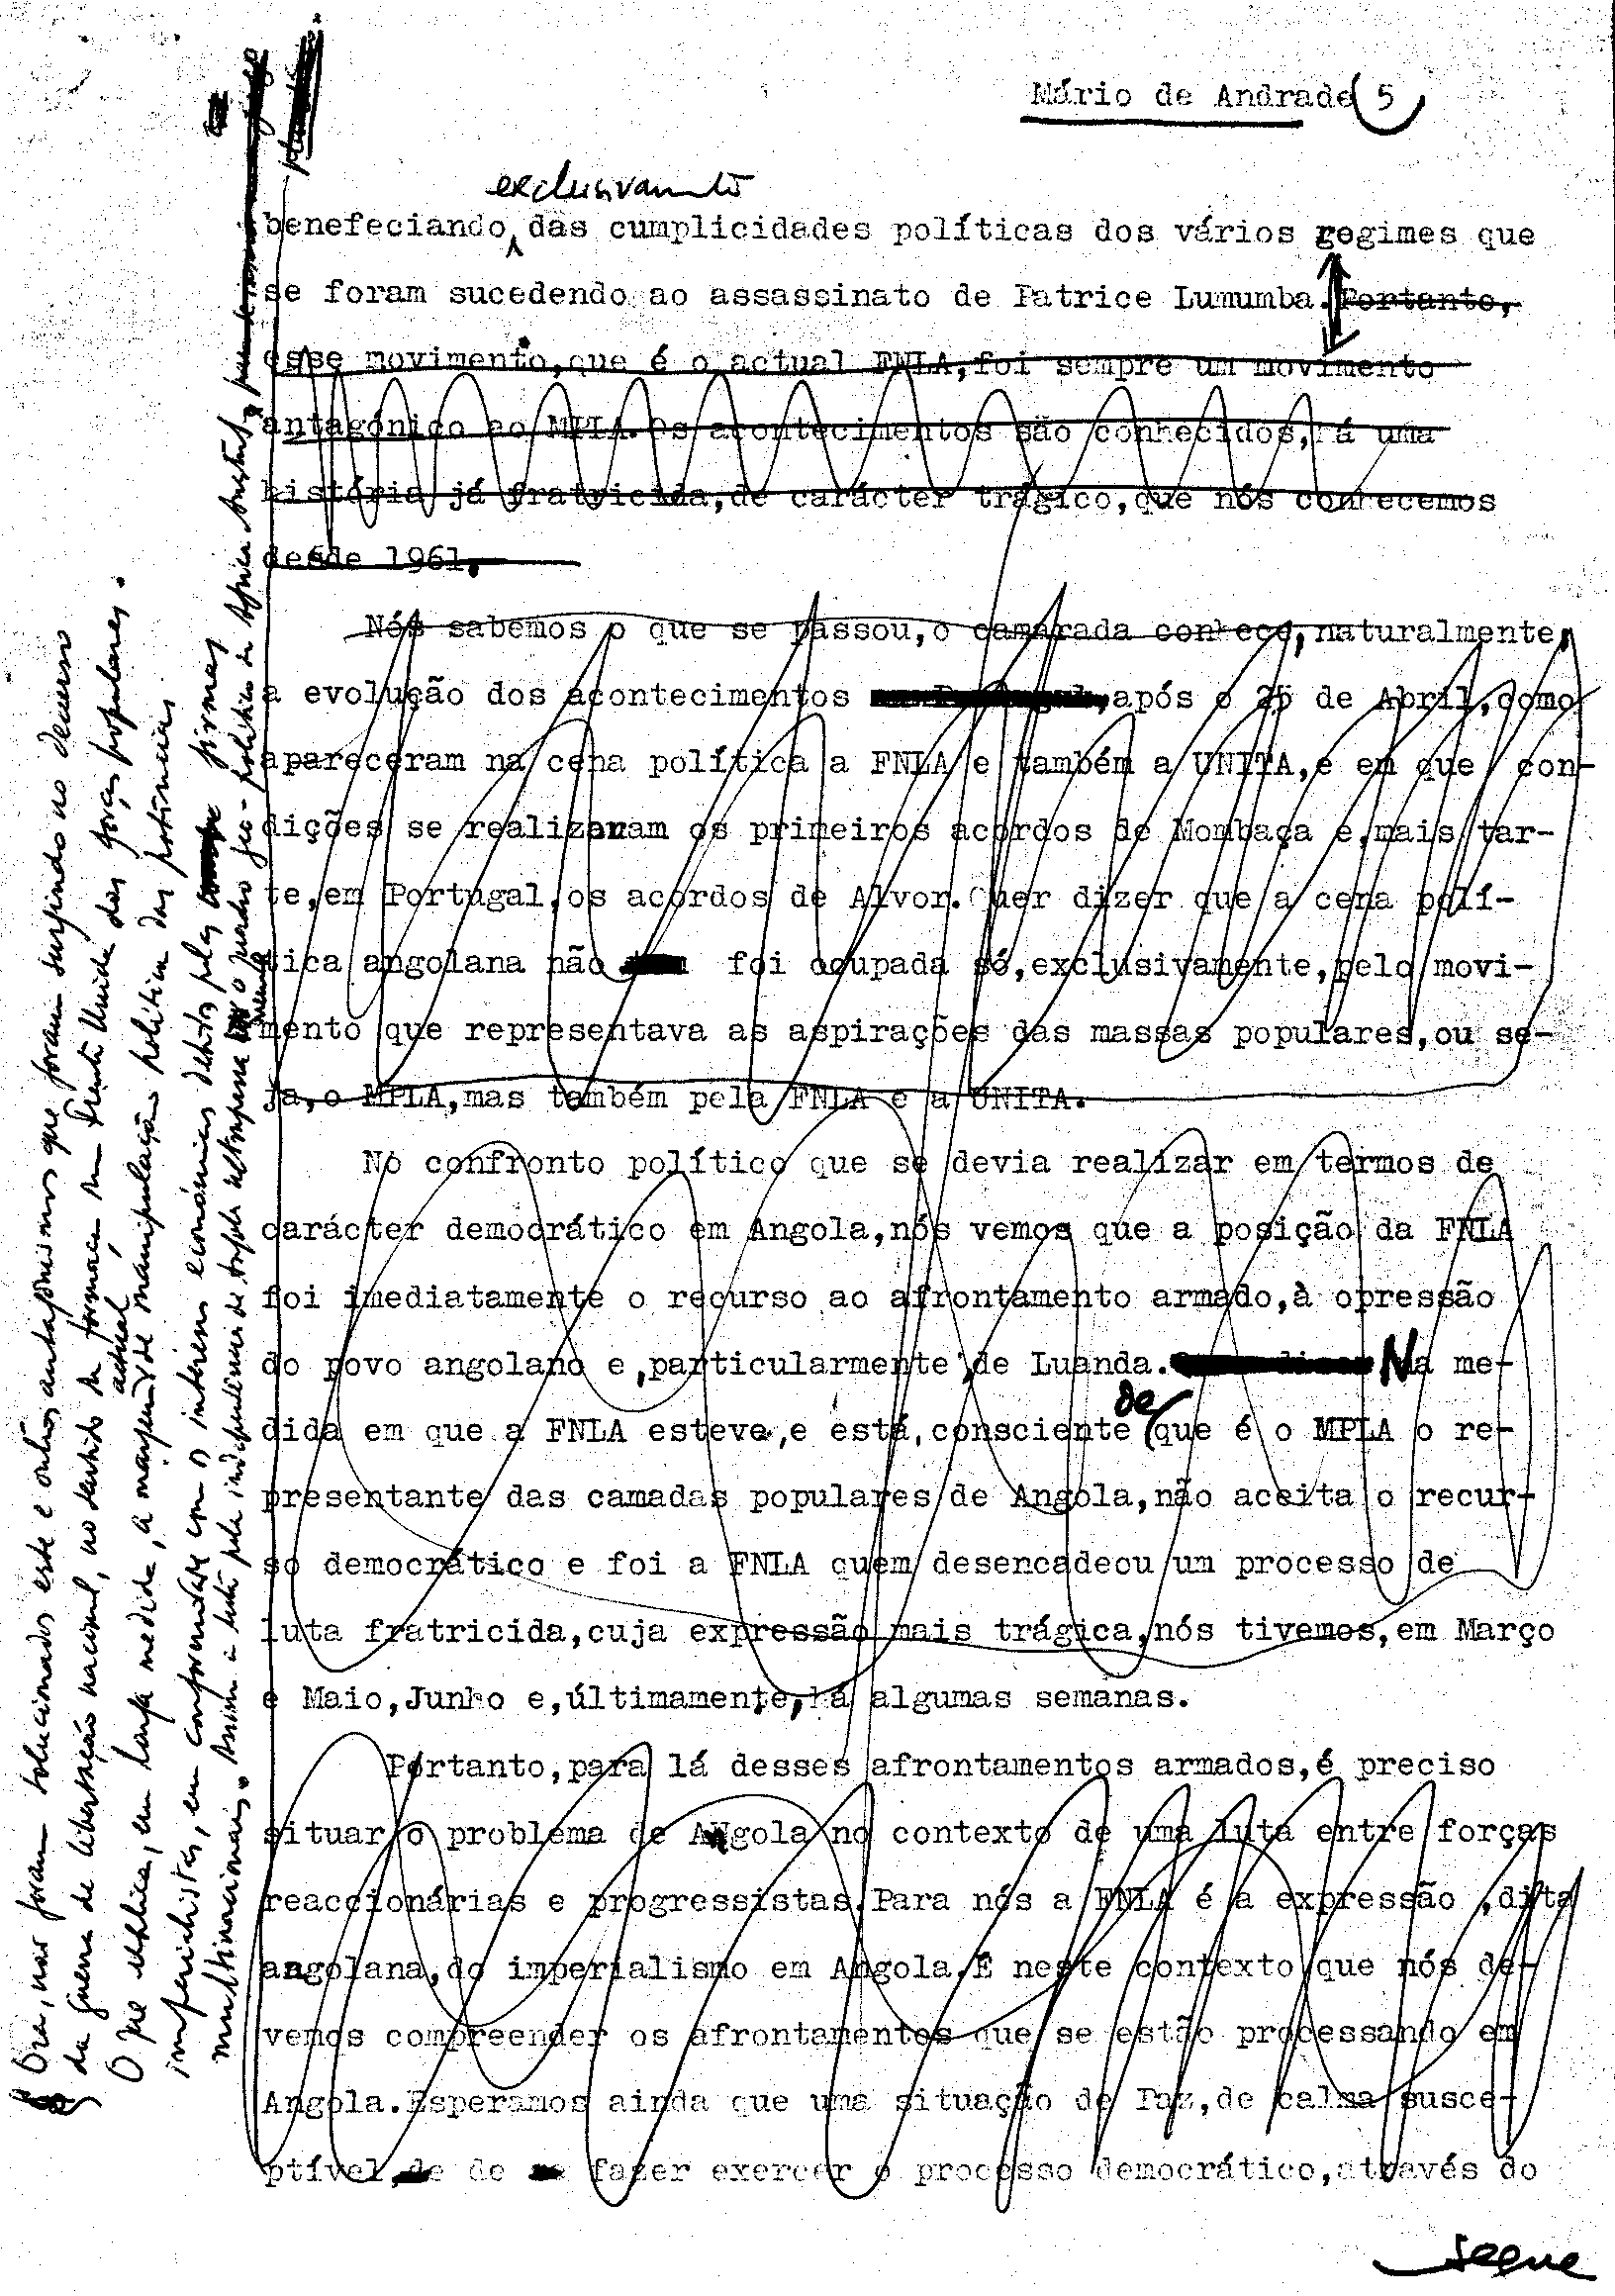 Mário de Andrade 5
exclusivamente
benefeciando das cumplicidades políticas dos vários regimes que
se foram sucedendo ao assassinato de Patrice Lumumba. Portanto,
esse movimento,que é o actual FNLA,foi sempre um movimento
antagónico ao MPLA.Os acontecimentos são conhecidos,há uma
história já fratricida,de carácter trágico,que nós conhecemos
desde 1961,
Nós sabemos o que se passou,o camarada conhece,naturalmente,
a evolução dos acontecimentos ,após o 25 de Abril,como
apareceram na cena política a FNLA e também a UNITA,e em que con-
dições se realizaram os primeiros acordos de Mombaça e,mais tar-
te,em Portugal,os acordos de Alvor.Quer dizer que a cena polí-
tica angolana não foi ocupada só,exclusivamente,pelo movi-
mento que representava as aspirações das massas populares,ou se-
ja,o MPLA,mas também pela FNLA e a UNITA.
No confronto político que se devia realizar em termos de
carácter democrático em Angola,nós vemos que a posição da FNLA
foi imediatamente o recurso ao afrontamento armado,à opressão
do povo angolano e,particularmente,de Luanda. Na me-
de
dida em que a FNLA esteve,e está,consciente que é o MPLA o re-
presentante das camadas populares de Angola,não aceita o recur-
so democrático e foi a FNLA quem desencadeou um processo de
luta fratricida,cuja expressão mais trágica,nós tivemos,em Março
e Maio,Junho e,últimamente,há algumas semanas.
Portanto,para lá desses afrontamentos armados,é preciso
situar o problema de Angola no contexto de uma luta entre forças
reaccionárias e progressistas.Para nós a FNLA é a expressão ,dita
angolana,do imperialismo em Angola.E neste contexto que nós de-
vemos compreender os afrontamentos que se estão processando em
Angola.Esperamos ainda que uma situação de Paz,de calma susce-
ptível,de de fazer exercer o processo democrático,através do
segue
Ora, não foram solucionados este e outros antagonismos que foram surgindo no decurso
da guerra de libertação nacional, no sentido de formação de Frente Unida das forças populares.
actual
O que explica, em larga medida, a margem de manipulação política das potências
imperialistas, em conformidade com os interesses económicos detidos pelas firmas
multinacionais. Assim a luta pela independência de Angola ultrapassa o quadro geo-político da África Austral,